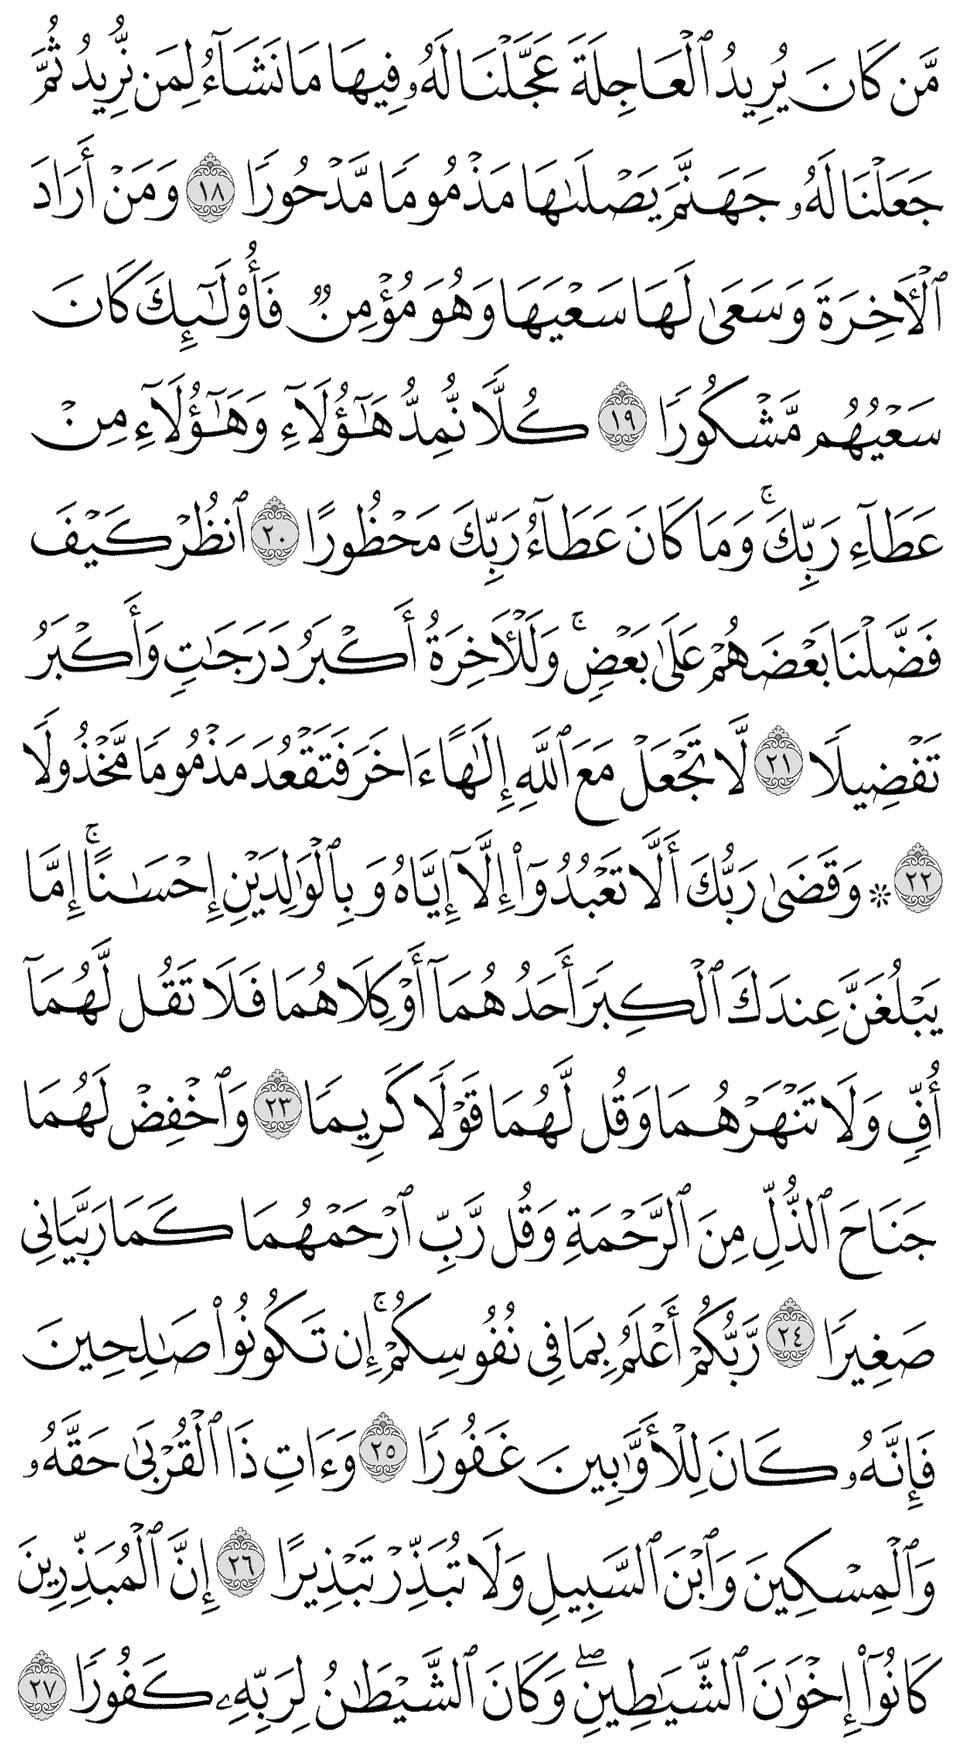 مَّن كَانَ يُرِيدُ ٱلْعَاجِلَةَ عَجَّلْنَا لَهُۥ فِيهَا مَا نَشَآءُ لِمَن نُّرِيدُ ثُمَّ
جَعَلْنَا لَهُۥ جَهَنَّمَ يَصْلَىٰهَا مَذْمُومًا مَّدْحُورًا ١٨ وَمَنْ أَرَادَ
ٱلْأَخِرَةَ وَسَعَىٰ لَهَا سَعْيَهَا وَهُوَ مُؤْمِنٌ فَأُو۟لَـٰٓئِكَ كَانَ
سَعْيُهُم مَّشْكُورًا ١٩ كُلًّا نُّمِدُّ هَـٰٓؤُلَآءِ وَهَـٰٓؤُلَآءِ مِنْ
عَطَآءِ رَبِّكَ ۚ وَمَا كَانَ عَطَآءُ رَبِّكَ مَحْظُورًا ٢٠ ٱنظُرْ كَيْفَ
فَضَّلْنَا بَعْضَهُمْ عَلَىٰ بَعْضٍ ۚ وَلَلْأَخِرَةُ أَكْبَرُ دَرَجَـٰتٍ وَأَكْبَرُ
تَفْضِيلًا ٢١ لَّا تَجْعَلْ مَعَ ٱللَّهِ إِلَـٰهًا ءَاخَرَ فَتَقْعُدَ مَذْمُومًا مَّخْذُولًا
٢٢ ۞ وَقَضَىٰ رَبُّكَ أَلَّا تَعْبُدُوٓا۟ إِلَّآ إِيَّاهُ وَبِٱلْوَٰلِدَيْنِ إِحْسَـٰنًا ۚ إِمَّا
يَبْلُغَنَّ عِندَكَ ٱلْكِبَرَ أَحَدُهُمَآ أَوْ كِلَاهُمَا فَلَا تَقُل لَّهُمَآ
أُفٍّ وَلَا تَنْهَرْهُمَا وَقُل لَّهُمَا قَوْلًا كَرِيمًا ٢٣ وَٱخْفِضْ لَهُمَا
جَنَاحَ ٱلذُّلِّ مِنَ ٱلرَّحْمَةِ وَقُل رَّبِّ ٱرْحَمْهُمَا كَمَا رَبَّيَانِى
صَغِيرًا ٢٤ رَّبُّكُمْ أَعْلَمُ بِمَا فِى نُفُوسِكُمْ ۚ إِن تَكُونُوا۟ صَـٰلِحِينَ
فَإِنَّهُۥ كَانَ لِلْأَوَّٰبِينَ غَفُورًا ٢٥ وَءَاتِ ذَا ٱلْقُرْبَىٰ حَقَّهُۥ
وَٱلْمِسْكِينَ وَٱبْنَ ٱلسَّبِيلِ وَلَا تُبَذِّرْ تَبْذِيرًا ٢٦ إِنَّ ٱلْمُبَذِّرِينَ
كَانُوٓا۟ إِخْوَٰنَ ٱلشَّيَـٰطِينِ ۖ وَكَانَ ٱلشَّيْطَـٰنُ لِرَبِّهِۦ كَفُورًا ٢٧